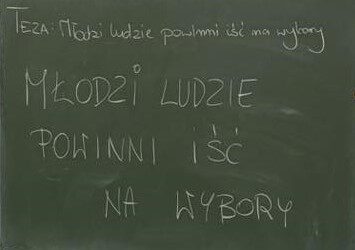 TEZA: Młodzi ludzie powinni iść na wybory
MŁODZI LUDZIE
POWINNI IŚĆ
NA WYBORY